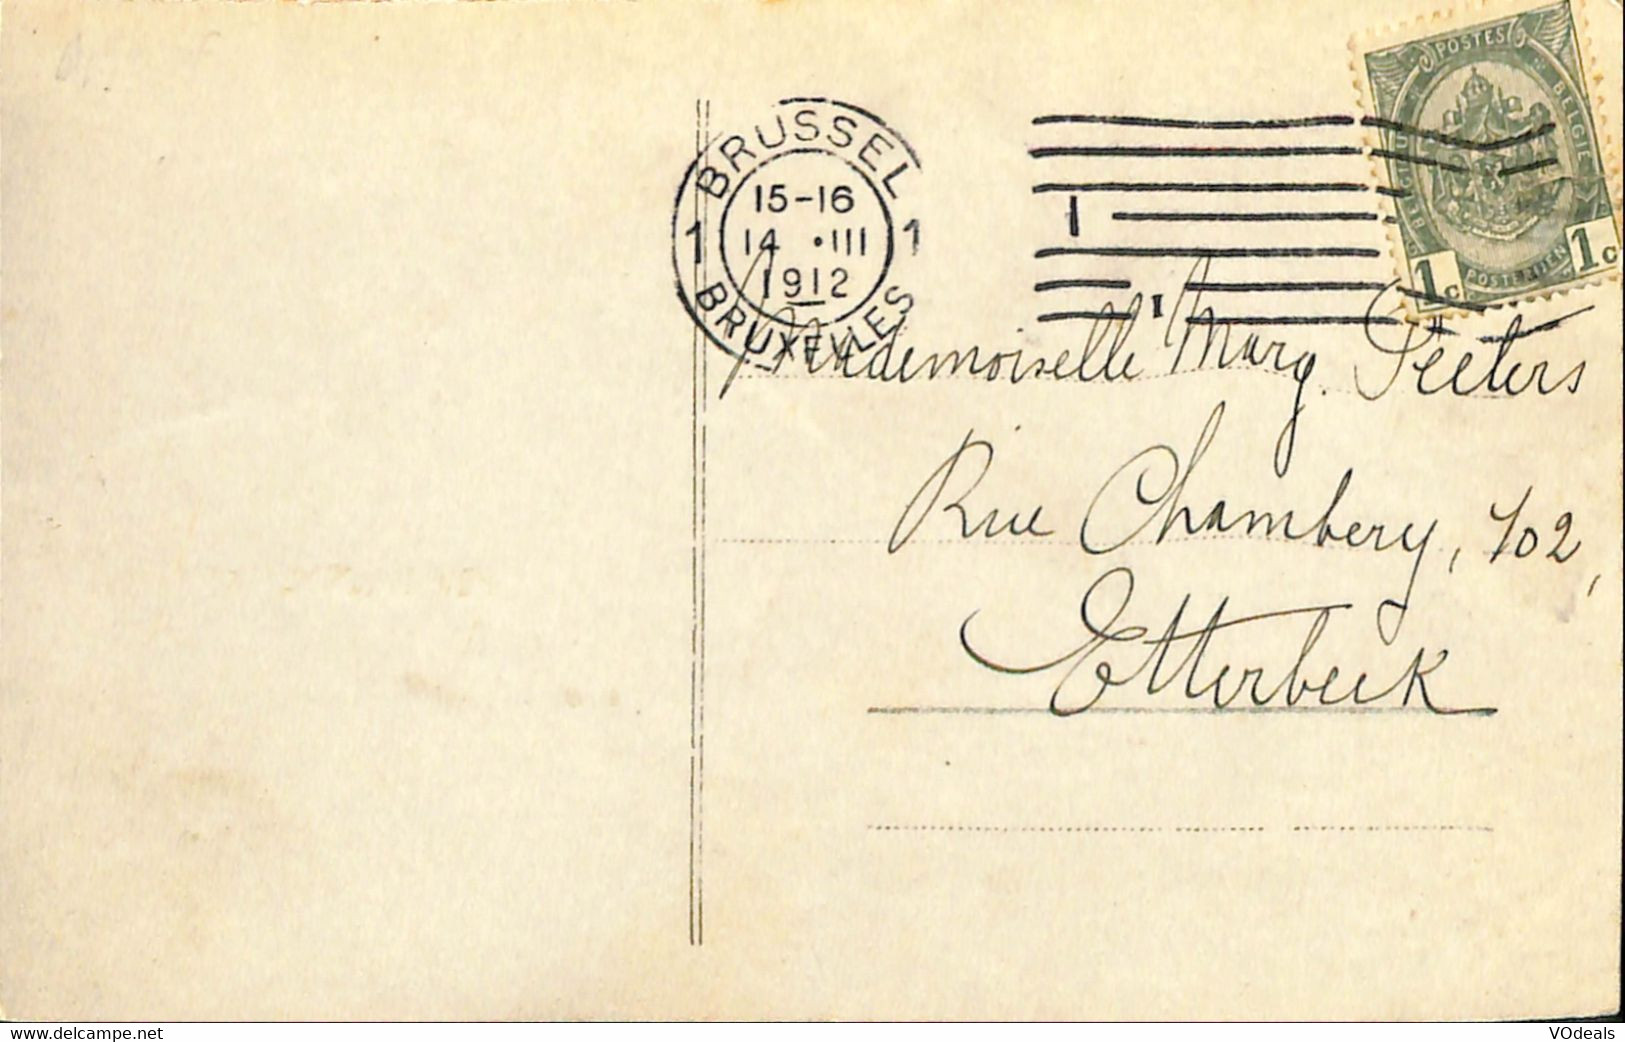 BRUSSEL
15-16
14 •III
1912
1 1
BRUXELLES
1
1
POSTES
BELGIE
1c 1c
Mademoiselle Marg. Peeters
Rue Chambery, 102,
Etterbeek
delcampe.net
VOdeals